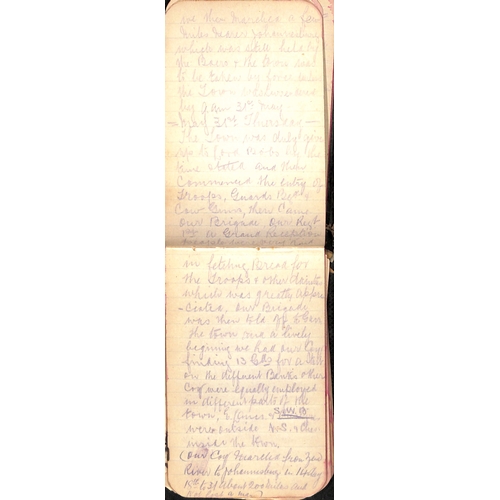 we then marched a few
miles nearer Johannesburg
which was still held by
the Boers & the town was
to be taken by force unless
the Town was surrendered
by 9 am 31st May
- May 31st Thursday -
The Town was duly given
up to Lord Bobs by the
time stated and then
Commenced the entry of
Troops, Guards Regt &
Cow Guns, then Came
our Brigade our Regt
1st a Grand reception
in fetching Bread for
the Troops & other dainties
which was greatly appre
-ciated, our Brigade
was then told off to Garr
the town and a lively
beginning we had our Coys
finding 13 Gds for a start
on the different Banks & other
Coys were equally employed
in different parts of the
town, S.W.B.
were outside & then
inside the town
(Our Coy marched from Zand
River to Johannesburg in
15th to 31 about 200 miles and
not lost a man)